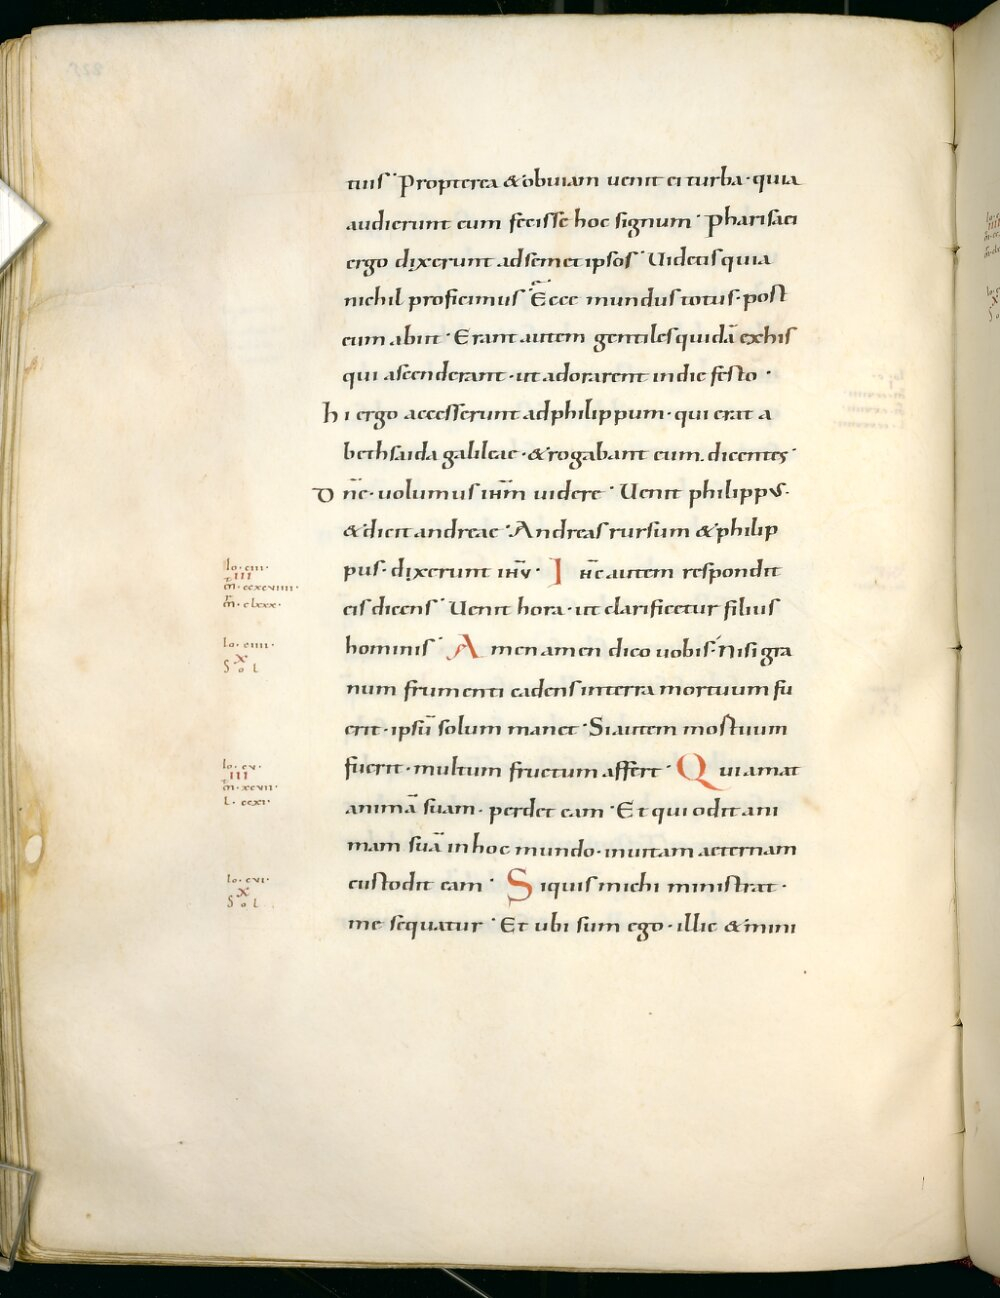 tuis · Propterea & obuiam uenit ei turba · quia
audierunt eum fecisse hoc signum · Pharisaei
ergo dixerunt ad semet ipsos · Uidetis quia
nichil proficimus · Ecce mundus totus · post
eum abiit · Erant autem gentiles quidā ex his
qui ascenderant · ut adorarent in die festo ·
hi ergo accesserunt ad philippum · qui erat a
bethsaida galileae · & rogabant eum · dicentes ·
Dn̄e · uolumus ih̄m uidere · Uenit philippus ·
& dicit andreae · Andreas rursum & philip
pus · dixerunt ih̄u · Ih̄c autem respondit
eis dicens · Uenit hora · ut clarificetur filius
hominis · Amen amen dico uobis · Nisi gra
num frumenti cadens in terra mortuum fu
erit · ipsū solum manet · Si autem mortuum
fuerit · multum fructum affert · Qui amat
animā suam · perdet eam · Et qui odit ani
mam suā in hoc mundo · in uitam aeternam
custodit eam · Si quis michi ministrat ·
me sequatur · Et ubi sum ego · illic & mini
Io · ciii ·
III
m̄ · ccxcviiii ·
m̄ · clxxx ·
Io · ciiii ·
X
Sol
Io · cv ·
III
m̄ · xcvii ·
L · ccxi ·
Io · cvi ·
X
Sol